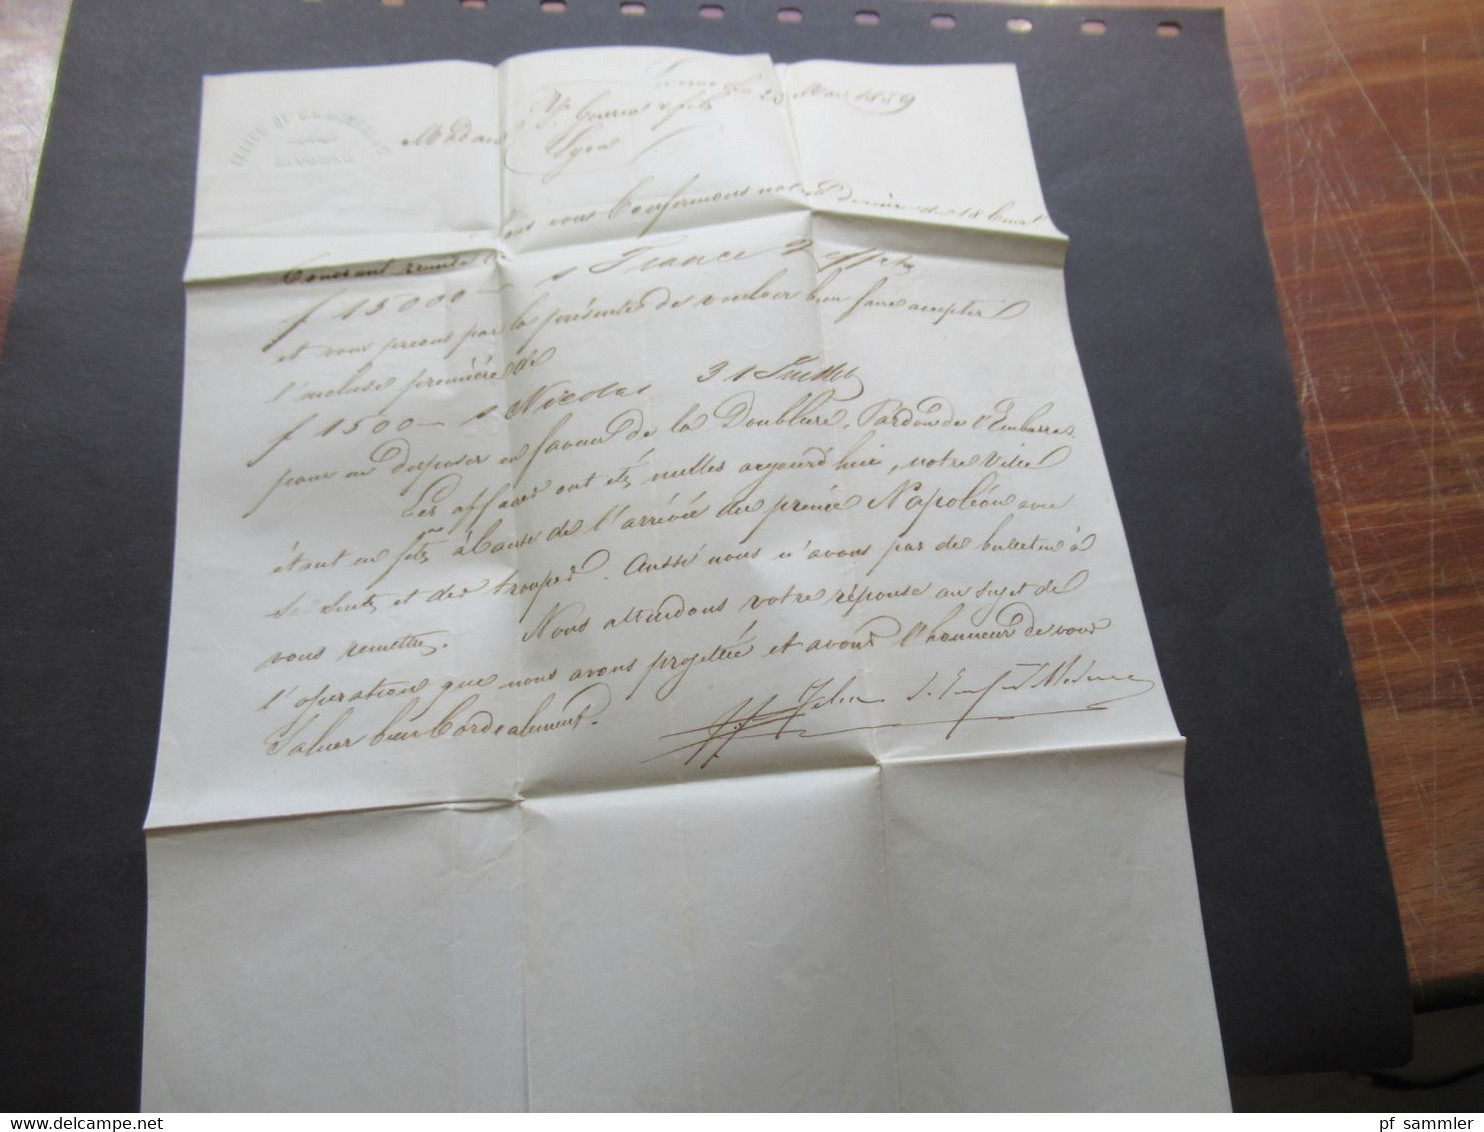 FELICE DI
LIVORNO
23 Mai 1859
Madame
Y. Guerin & fils
Lyon
vous Confirmons notre Dernière du 18 Court
Courant remise
f 15000 — s France
et vous prions par la présente de vouloir bien faire accepter
l'incluse première de
f 1500 — s Nicolas 31 Juillet
pour en disposer en faveur de la Doublure. Pardon de l'Embarras.
Les affaires ont été nulles aujourd'hui, notre Ville
étant en fête à Cause de l'arrivée du prince Napoléon avec
sa suite et des troupes. Aussi nous n'avons pas de bulletin à
vous remettre. Nous attendons votre réponse au sujet de
l'opération que nous avons projettée et avons l'honneur de vous
Saluer bien Cordialement.
delcampe.net
pf_sammler